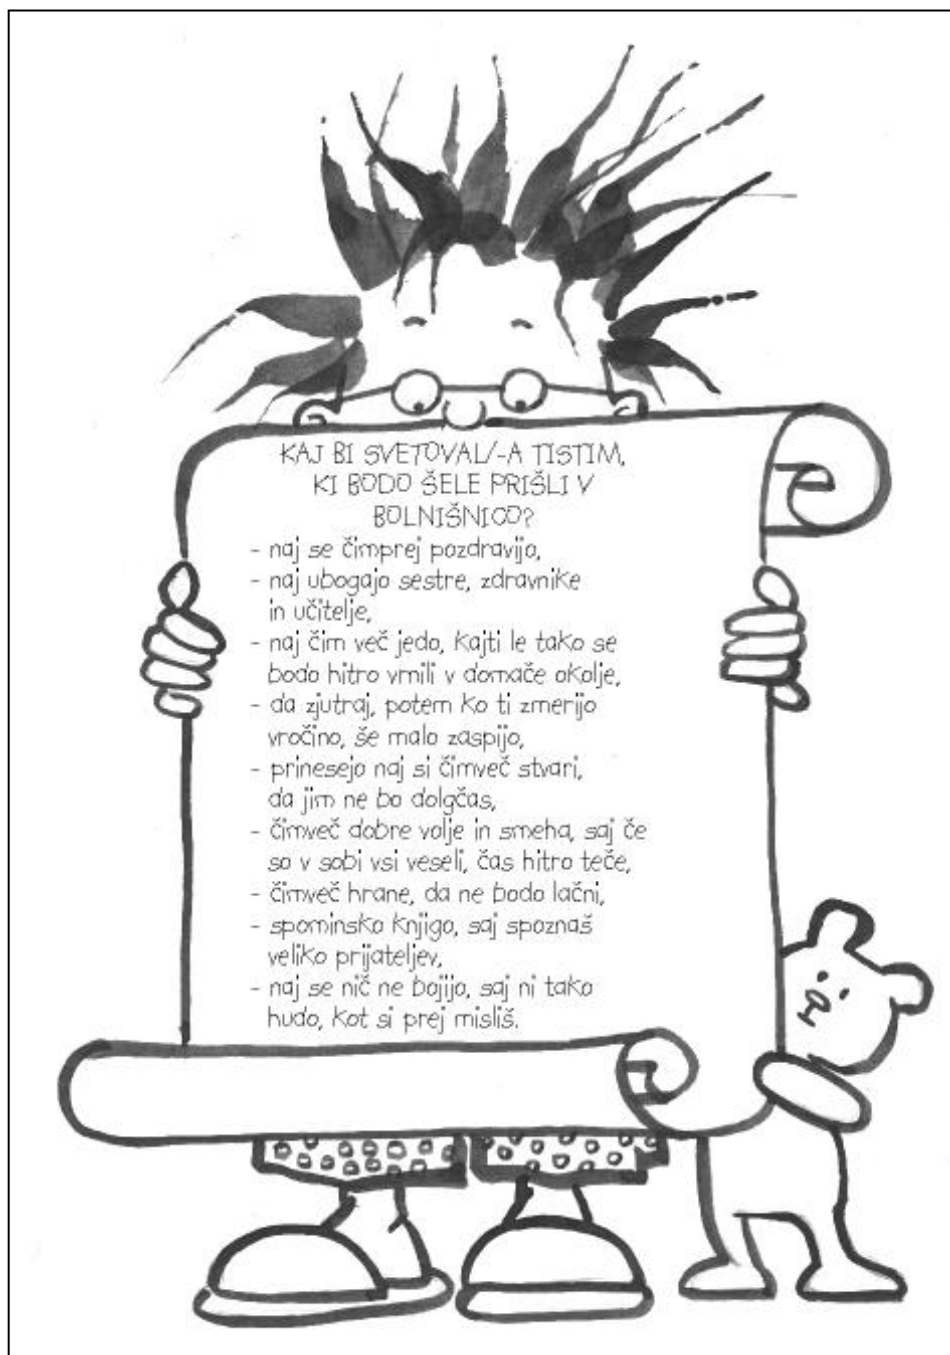 KAJ BI SVETOVAL/-A TISTIM,
KI BODO ŠELE PRIŠLI V
BOLNIŠNICO?
- naj se čimprej pozdravijo,
- naj ubogajo sestre, zdravnike
in učitelje,
- naj čim več jedo, kajti le tako se
bodo hitro vrnili v domače okolje,
- da zjutraj, potem ko ti zmerijo
vročino, še malo zaspijo,
- prinesejo naj si čimveč stvari,
da jim ne bo dolgčas,
- čimveč dobre volje in smeha, saj če
so v sobi vsi veseli, čas hitro teče,
- čimveč hrane, da ne bodo lačni,
- spominsko knjigo, saj spoznaš
veliko prijateljev,
- naj se nič ne bojijo, saj ni tako
hudo, kot si prej misliš.